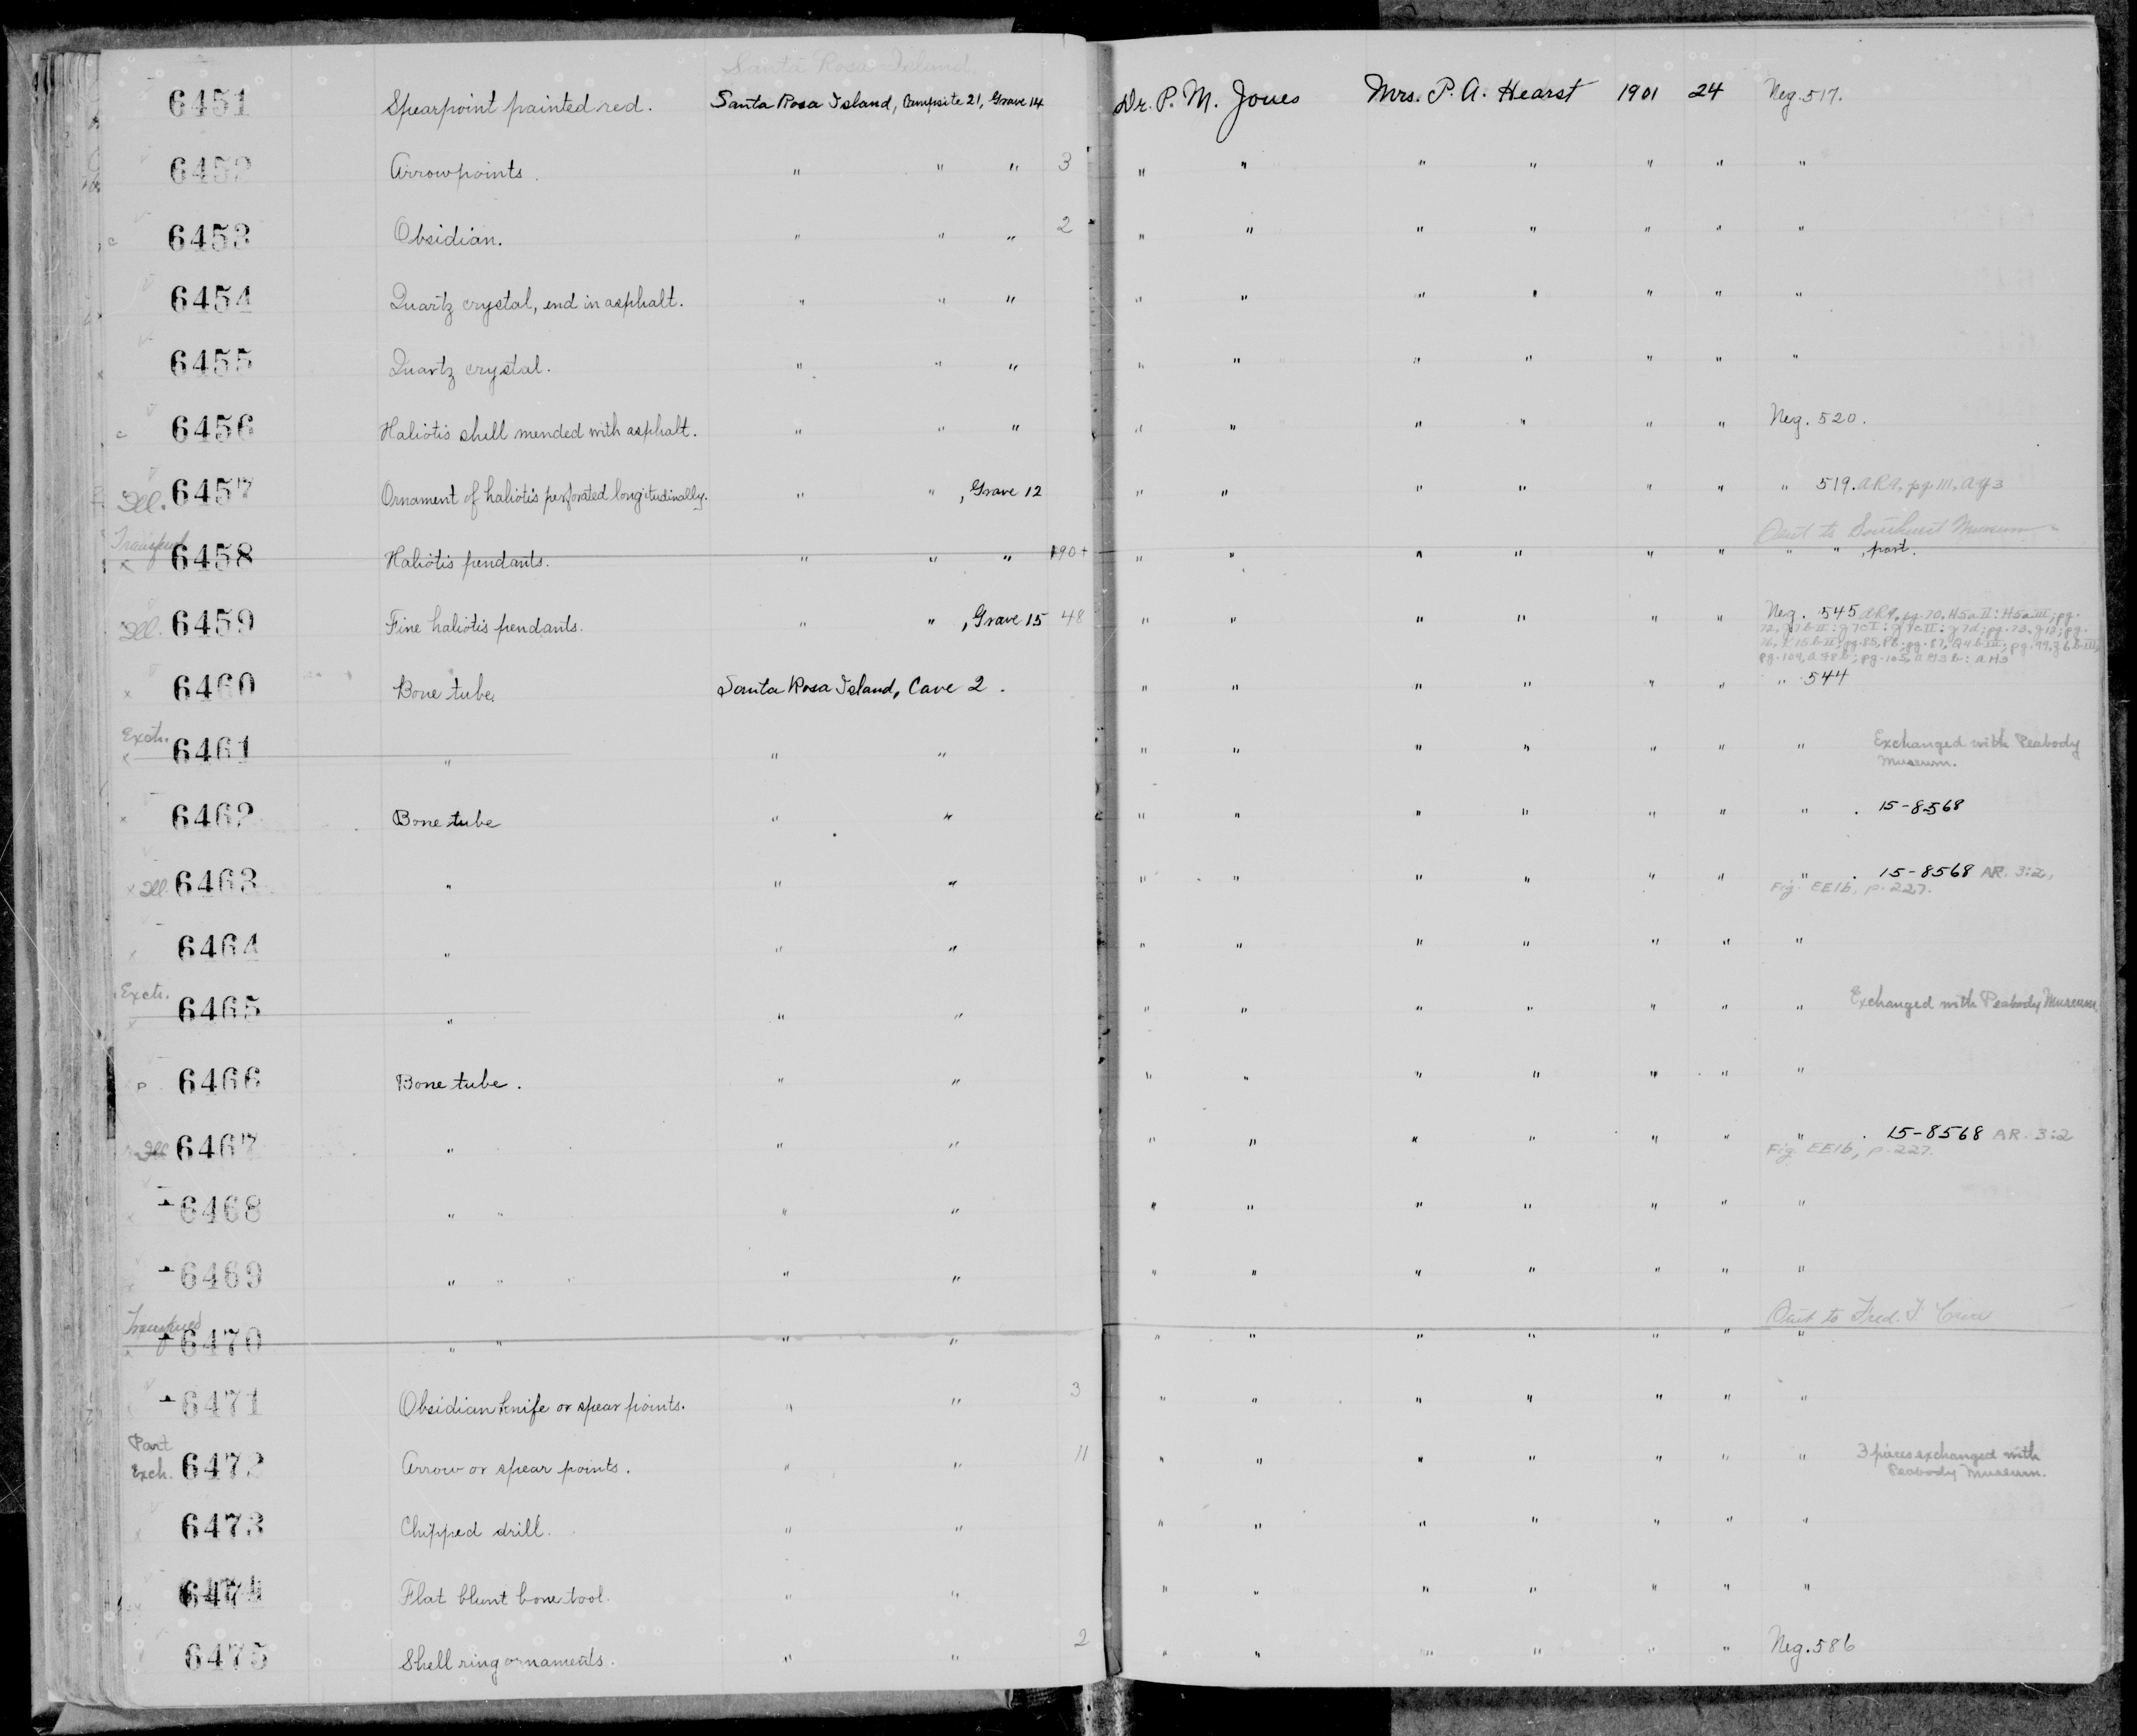 Santa Rosa Island
6451 Spearpoint painted red. Santa Rosa Island, Campsite 21, Grave 14 Dr. P. M. Jones Mrs. P. A. Hearst 1901 24 Neg. 517.
6452 Arrowpoints. " " " 3 " " " " " " "
6453 Obsidian. " " " 2 " " " " " " "
6454 Quartz crystal, end in asphalt. " " " " " " " " " "
6455 Quartz crystal. " " " " " " " " " "
c 6456 Haliotis shell mended with asphalt. " " " " " " " " " Neg. 520.
Ill. 6457 Ornament of haliotis perforated longitudinally. " " , Grave 12 " " " " " " " 519. AR9, pg. 111, AY3
Sent to Southwest Museum
6458 Haliotis pendants. " " " 190+ " " " " " " " " , part.
Ill. 6459 Fine haliotis pendants. " " , Grave 15 48 " " " " " " Neg. 545 AR9, pg. 70, H5aII: H5aIII; pg.
pg. 104, AF8b; pg. 105,
6460 Bone tube. Santa Rosa Island, Cave 2. " " " " " " " 544
Exch. 6461 " " " " " " " " " " Exchanged with Peabody
Museum.
x 6462 Bone tube " " " " " " " " " . 15-8568
x Ill. 6463 " " " " " " " " " " . 15-8568 AR. 3:2,
Fig. EE1b, p. 227.
6464 " " " " " " " " " "
Exch. 6465 " " " " " " " " " " Exchanged with Peabody Museum.
P 6466 Bone tube. " " " " " " " " "
Ill 6467 " " " " " " " " " " . 15-8568 AR. 3:2
Fig. EE1b, p. 227.
6468 " " " " " " " " " " "
6469 " " " " " " " " " " "
Sent to Fred. J.
6470 " " " " " " " " " " "
6471 Obsidian knife or spear points. " " 3 " " " " " " "
Part
Exch. 6472 Arrow or spear points. " " 11 " " " " " " " 3 pieces exchanged with
Peabody Museum.
6473 Chipped drill. " " " " " " " " "
6474 Flat blunt bone tool. " " " " " " " " "
6475 Shell ring ornaments. " " 2 " " " " " " Neg. 586